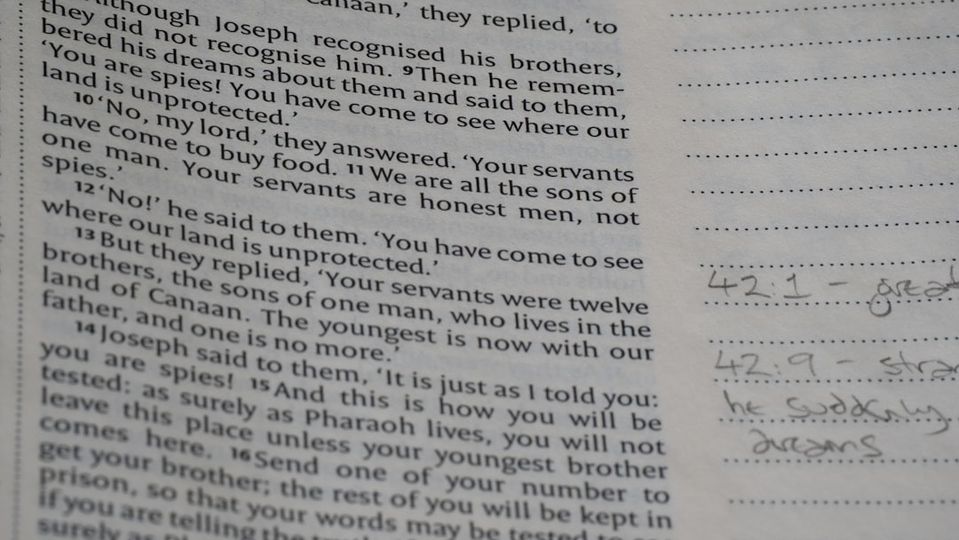 Canaan,' they replied, 'to
Although Joseph recognised his brothers,
they did not recognise him. 9Then he remem-
bered his dreams about them and said to them,
'You are spies! You have come to see where our
land is unprotected.'
10'No, my lord,' they answered. 'Your servants
have come to buy food. 11We are all the sons of
one man. Your servants are honest men, not
spies.'
12'No!' he said to them. 'You have come to see
where our land is unprotected.'
13But they replied, 'Your servants were twelve
brothers, the sons of one man, who lives in the
land of Canaan. The youngest is now with our
father, and one is no more.'
14Joseph said to them, 'It is just as I told you:
you are spies! 15And this is how you will be
tested: as surely as Pharaoh lives, you will not
leave this place unless your youngest brother
comes here. 16Send one of your number to
get your brother; the rest of you will be kept in
prison, so that your words may be tested to see
if you are telling the
surely as
42:1 - great
42:9 - stran
he suddenly
dreams